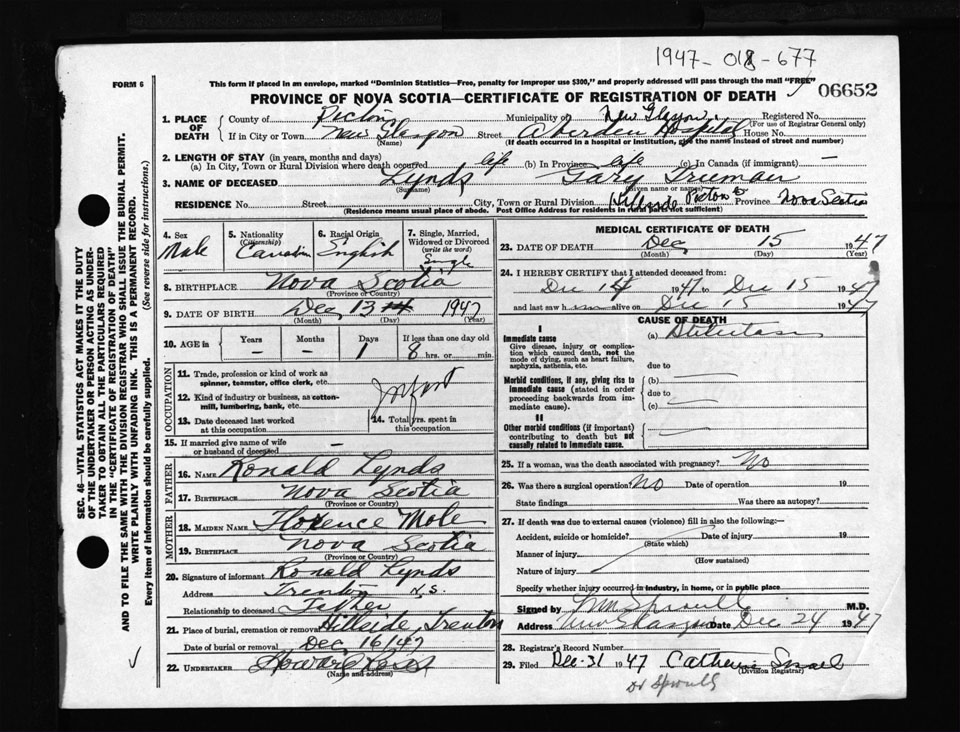 1947-018-677
FORM 6
This form if placed in an envelope, marked "Dominion Statistics—Free, penalty for improper use $300," and properly addressed will pass through the mail "FREE"
06652
PROVINCE OF NOVA SCOTIA—CERTIFICATE OF REGISTRATION OF DEATH
1. PLACE OF DEATH
County of Pictou Municipality of New Glasgow Registered No.
(For use of Registrar General only)
If in City or Town New Glasgow Street Aberdeen Hospital House No.
(Name) (If death occurred in a hospital or institution, give the name instead of street and number)
2. LENGTH OF STAY (in years, months and days)
(a) In City, Town or Rural Division where death occurred life (b) In Province life (c) In Canada (if immigrant) —
3. NAME OF DECEASED Lynds Gary Trueman
(Surname) (Given name or names)
RESIDENCE No. Street City, Town or Rural Division Hillside Pictou Co Province Nova Scotia
(Residence means usual place of abode. Post Office Address for residents in rural parts not sufficient)
4. Sex
Male
5. Nationality
(Citizenship)
Canadian
6. Racial Origin
English
7. Single, Married, Widowed or Divorced
(write the word)
Single
8. BIRTHPLACE Nova Scotia
(Province or Country)
9. DATE OF BIRTH Dec 13 14 1947
(Month) (Day) (Year)
10. AGE in
Years Months Days If less than one day old
— — 1 8 hrs. or min.
OCCUPATION
11. Trade, profession or kind of work as spinner, teamster, office clerk, etc.
Infant
12. Kind of industry or business, as cotton-mill, lumbering, bank, etc.
13. Date deceased last worked at this occupation
14. Total yrs. spent in this occupation
15. If married give name of wife or husband of deceased —
FATHER
16. NAME Ronald Lynds
17. BIRTHPLACE Nova Scotia
(Province or Country)
MOTHER
18. MAIDEN NAME Florence Mole
19. BIRTHPLACE Nova Scotia
(Province or Country)
20. Signature of informant Ronald Lynds
Address Trenton N.S.
Relationship to deceased Father
21. Place of burial, cremation or removal Hillside, Trenton
Date of burial or removal Dec 16/47
22. UNDERTAKER Howard
(Name and address)
MEDICAL CERTIFICATE OF DEATH
23. DATE OF DEATH Dec 15 1947
(Month) (Day) (Year)
24. I HEREBY CERTIFY that I attended deceased from:
Dec 14 1947 to Dec 15 1947
and last saw h alive on Dec 15 1947
CAUSE OF DEATH
I
Immediate cause
Give disease, injury or complication which caused death, not the mode of dying, such as heart failure, asphyxia, asthenia, etc.
(a)
due to
Morbid conditions, if any, giving rise to immediate cause (stated in order proceeding backwards from immediate cause).
(b)
due to
(c)
II
Other morbid conditions (if important) contributing to death but not causally related to immediate cause.
25. If a woman, was the death associated with pregnancy? No
26. Was there a surgical operation? No Date of operation 19
State findings Was there an autopsy?
27. If death was due to external causes (violence) fill in also the following:—
Accident, suicide or homicide? Date of injury 19
(State which)
Manner of injury
(How sustained)
Nature of injury
Specify whether injury occurred in industry, in home, or in public place
Signed by Sproull M.D.
Address New Glasgow Date Dec 24 1947
28. Registrar's Record Number
29. Filed Dec-31 1947 Catherine
(Division Registrar)
Dr Sproull
SEC. 46—VITAL STATISTICS ACT MAKES IT THE DUTY
OF THE UNDERTAKER OR PERSON ACTING AS UNDERTAKER TO OBTAIN ALL THE PARTICULARS REQUIRED
IN THE "CERTIFICATE OF REGISTRATION OF DEATH"
AND TO FILE THE SAME WITH THE DIVISION REGISTRAR WHO SHALL ISSUE THE BURIAL PERMIT.
WRITE PLAINLY WITH UNFADING INK. THIS IS A PERMANENT RECORD.
Every item of information should be carefully supplied. (See reverse side for instructions.)